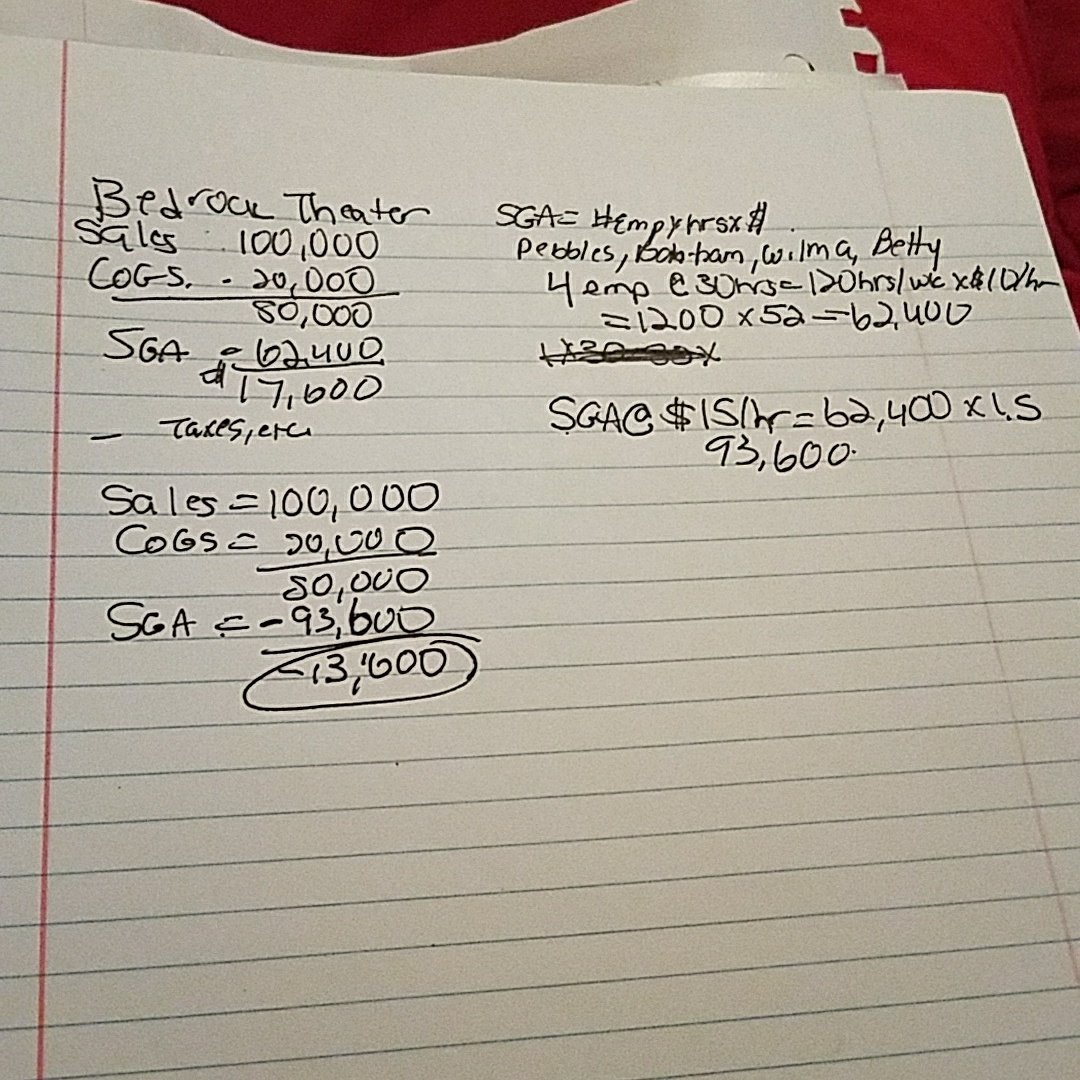 Bedrock Theater
Sales 100,000
COGS. - 20,000
80,000
SGA - 62,400
$17,600
- Taxes, etc.
Sales = 100,000
COGS = 20,000
80,000
SGA = -93,600
-13,600
SGA = #Emp x hrs x $
Pebbles, Bam-bam, Wilma, Betty
4 emp @ 30hrs = 120hrs/wk x $10/hr
= 1200 x 52 = 62,400
SGA @ $15/hr = 62,400 x 1.5
93,600.